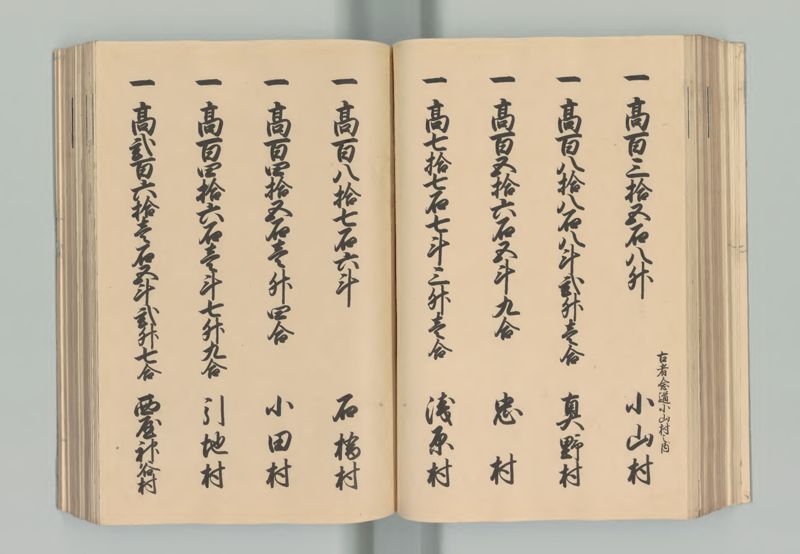 一 高百三拾五石八舛 小山村
古者会道小山村之内
一 高百八拾八石八斗弐舛壱合 真野村
一 高百五拾六石五斗九合 忠村
一 高七拾七石七斗三舛壱合 浅原村
一 高百八拾七石六斗 石橋村
一 高百四拾五石壱舛四合 小田村
一 高百四拾六石壱斗七舛九合 引地村
一 高弐百六拾壱石五斗弐舛七合 西屋神谷村